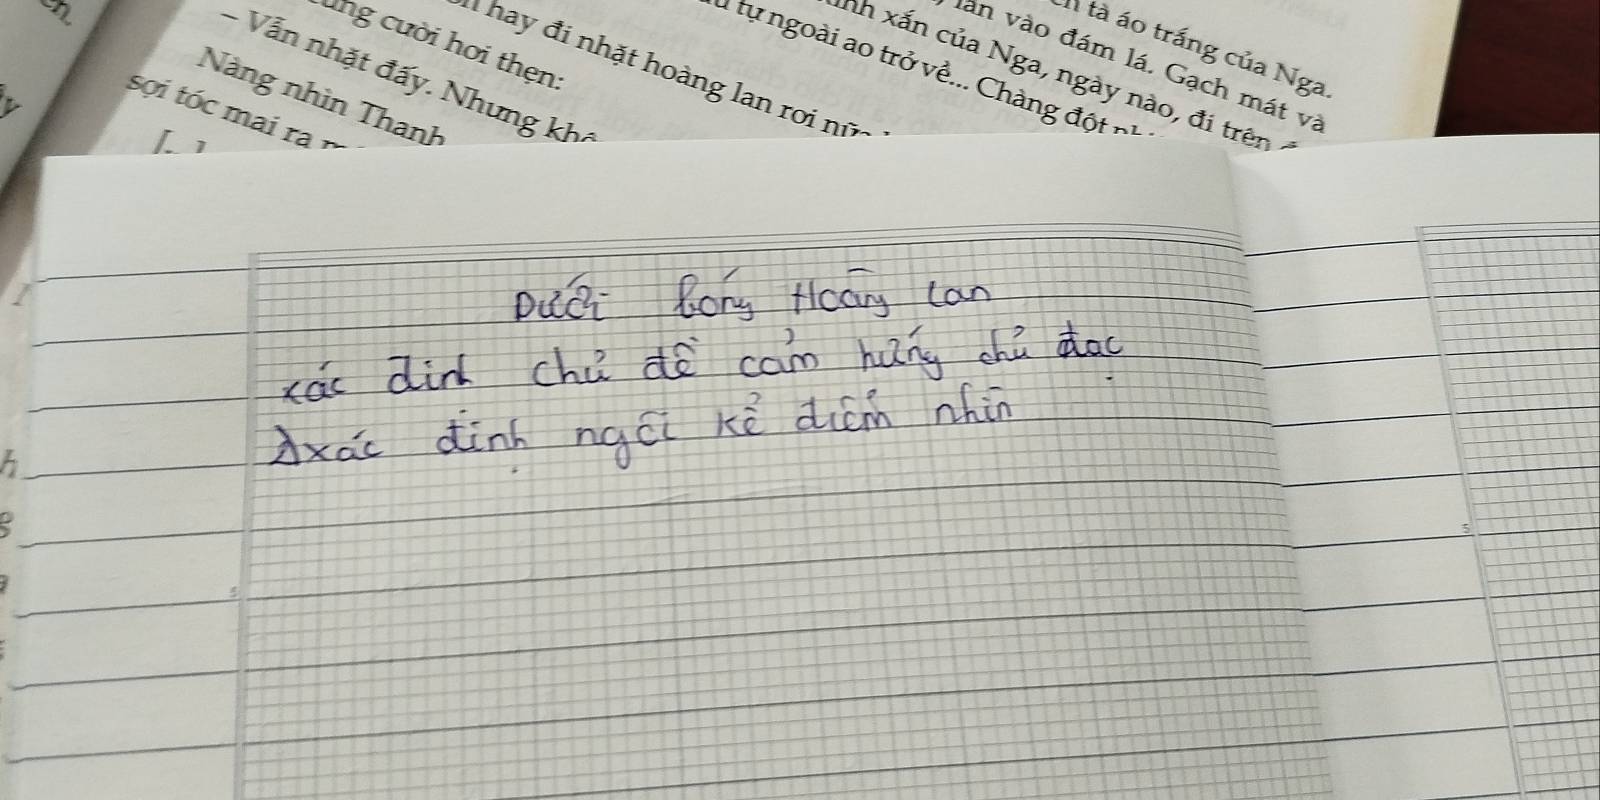 ên tà áo trắng của Nga.
lẫn vào đám lá. Gạch mát và
xinh xắn của Nga, ngày nào, đi trên
tự ngoài ao trở về... Chàng đột
hay đi nhặt hoàng lan rơi
cười hơi thẹn:
- Vẫn nhặt đấy. Nhưng
Nàng nhìn Thanh
sợi tóc mai ra
Dưới Bóng Hoāng lan
xác din chủ đề cảm hứng chủ đạc
xác định ngôi kể diểm nhìn